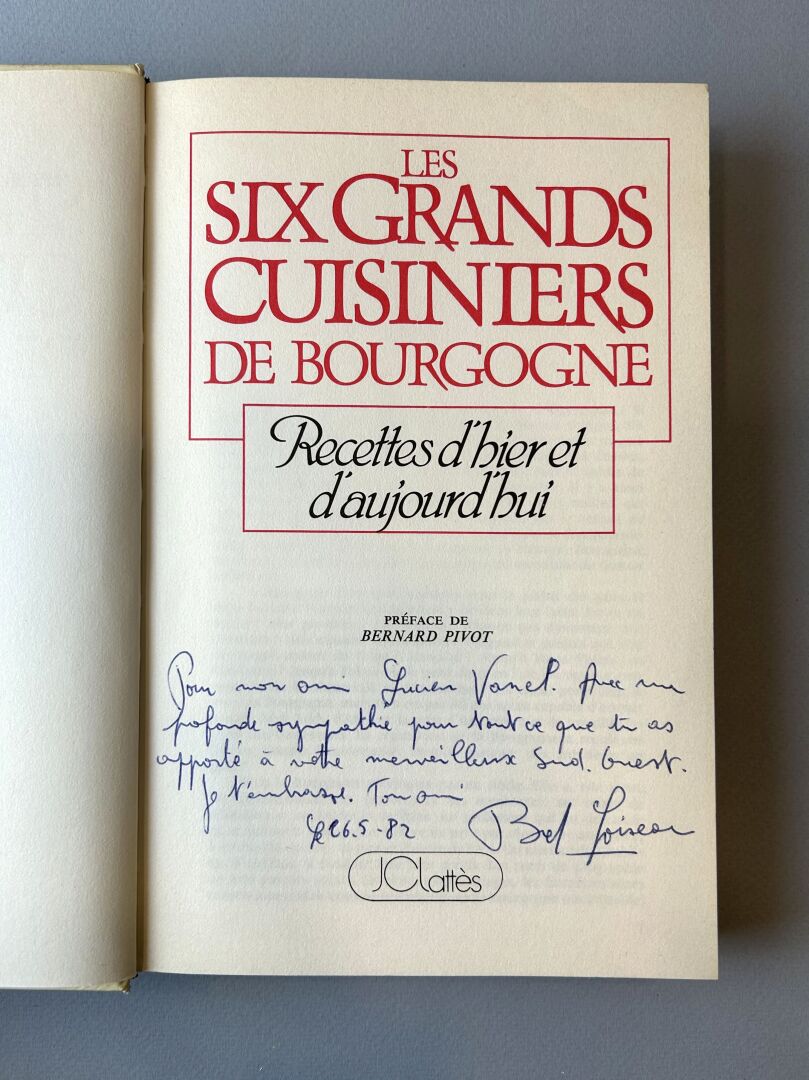 LES
SIX GRANDS
CUISINIERS
DE BOURGOGNE
Recettes d'hier et
d'aujourd'hui
PRÉFACE DE
BERNARD PIVOT
Pour mon ami Lucien Vanel. Avec une
profonde sympathie pour tout ce que tu as
apporté à votre merveilleux Sud. Ouest.
Je t'embrasse. Ton ami
Le 26.5-82 Bd Loiseau
JCLattès